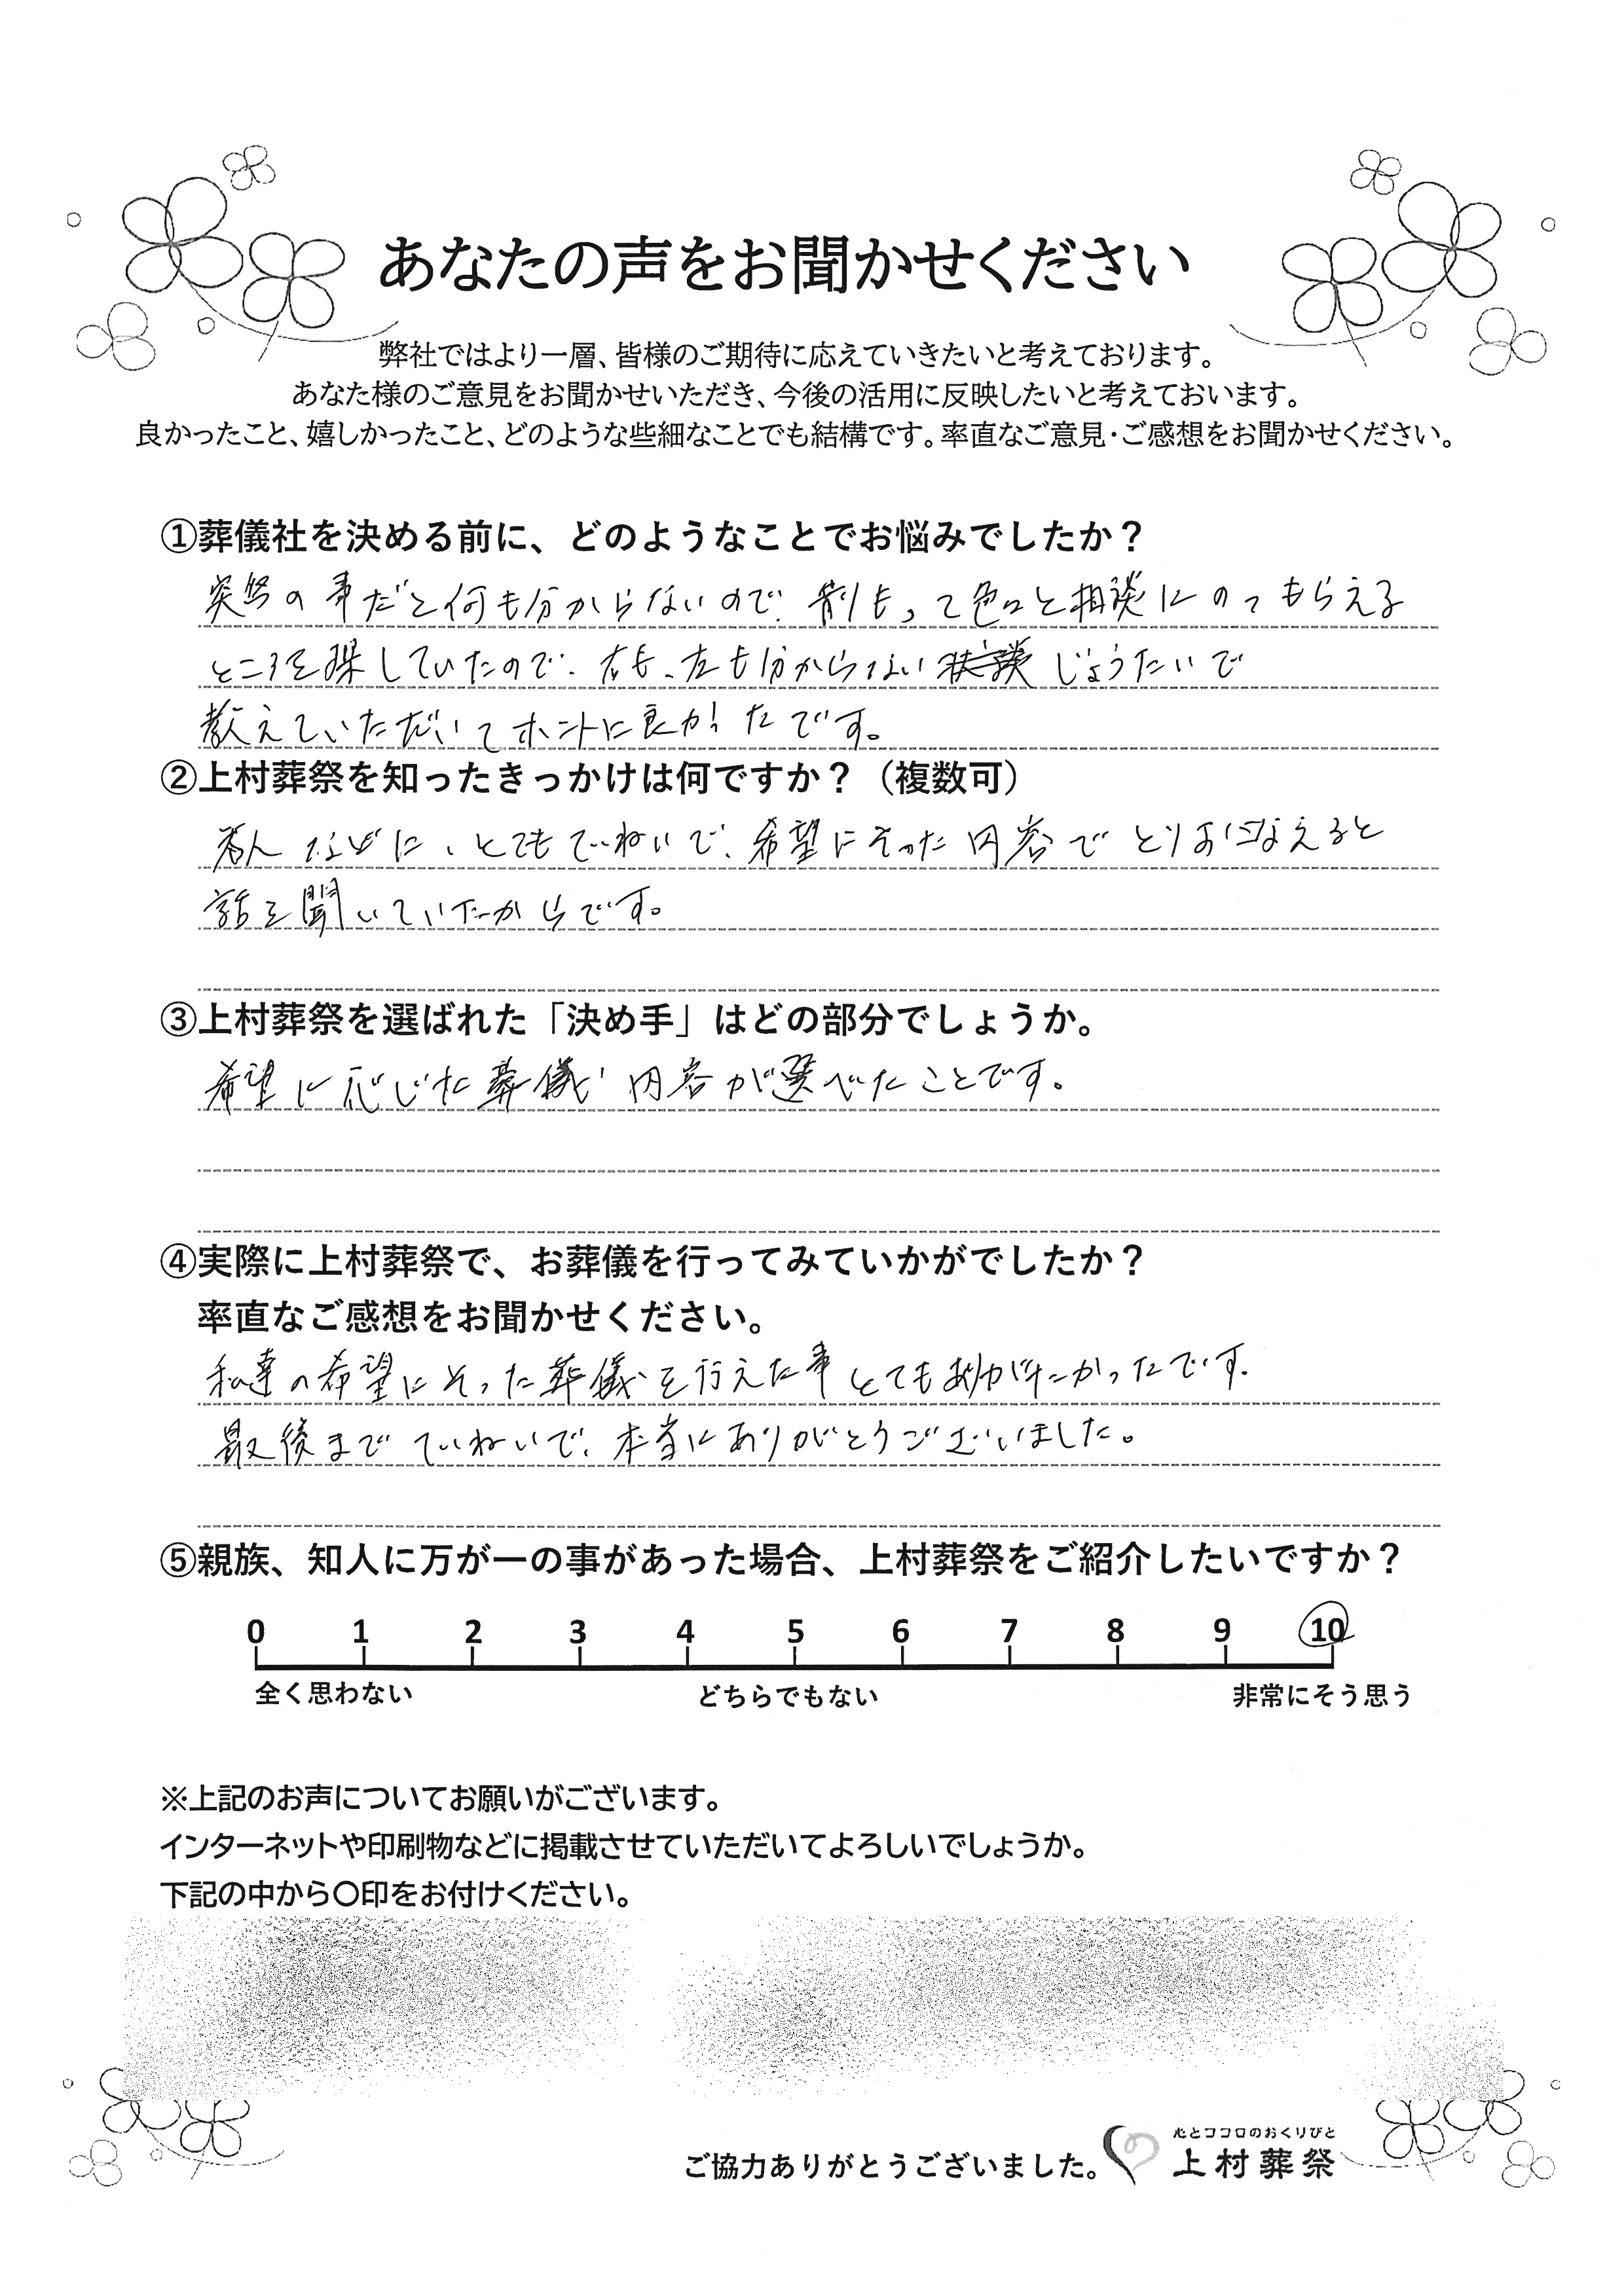 あなたの声をお聞かせください
弊社ではより一層、皆様のご期待に応えていきたいと考えております。
あなた様のご意見をお聞かせいただき、今後の活用に反映したいと考えておいます。
良かったこと、嬉しかったこと、どのような些細なことでも結構です。率直なご意見・ご感想をお聞かせください。
①葬儀社を決める前に、どのようなことでお悩みでしたか？
突然の事だと何も分からないので、前もって色々と相談にのってもらえる
ところを探していたので、右も、左も分からない じょうたいで
教えていただいてホントに良かったです。
②上村葬祭を知ったきっかけは何ですか？（複数可）
などに、とてもていねいで、希望にそった内容でとりおこなえると
話を聞いていたからです。
③上村葬祭を選ばれた「決め手」はどの部分でしょうか。
希望に応じた葬儀内容が選べたことです。
④実際に上村葬祭で、お葬儀を行ってみていかがでしたか？
率直なご感想をお聞かせください。
私達の希望にそった葬儀を行えた事とてもありがたかったです。
最後までていねいで、本当にありがとうございました。
⑤親族、知人に万が一の事があった場合、上村葬祭をご紹介したいですか？
0 1 2 3 4 5 6 7 8 9 10
全く思わない どちらでもない 非常にそう思う
※上記のお声についてお願いがございます。
インターネットや印刷物などに掲載させていただいてよろしいでしょうか。
下記の中から〇印をお付けください。
心とココロのおくりびと
ご協力ありがとうございました。 上村葬祭